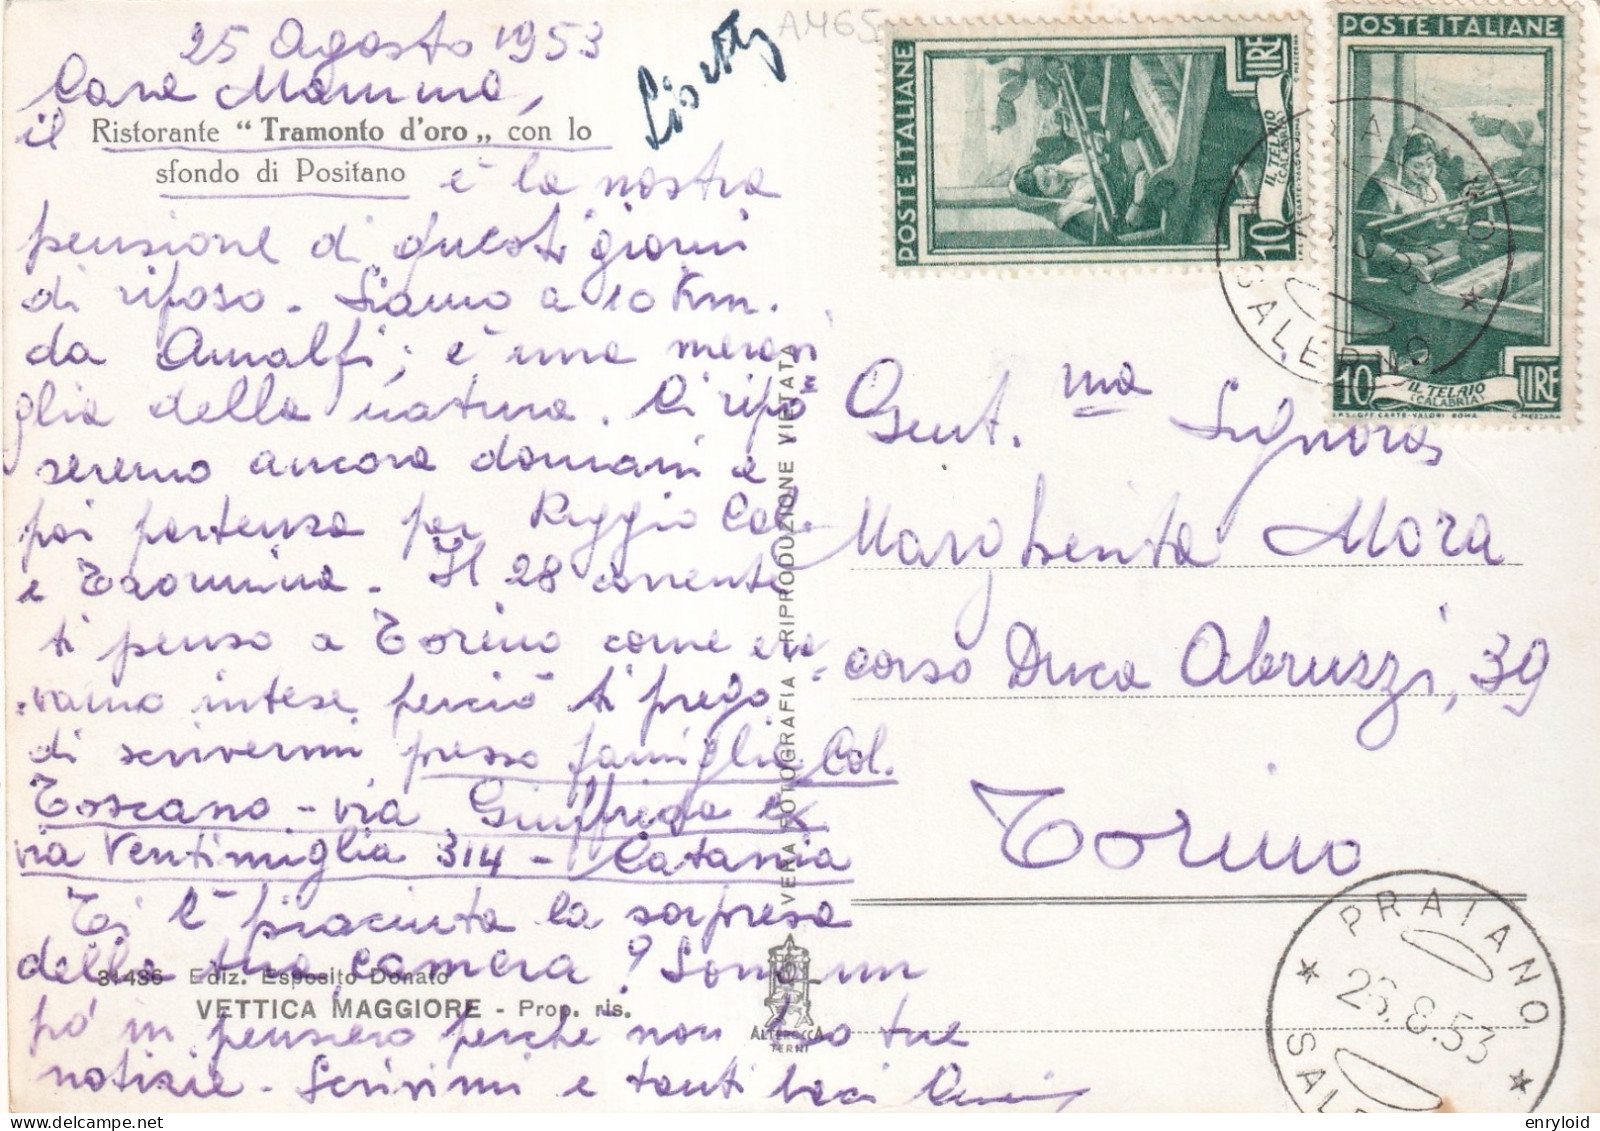 25 Agosto 1953
Cara Mamma,
il Ristorante "Tramonto d'oro„ con lo
sfondo di Positano è la nostra
pensione di questi giorni
di riposo. Siamo a 10 Km.
da Amalfi; è una meravi
glia della natura. Ci ripo=
seremo ancora domani e
poi partenza per Reggio Cal.
e Taormina. Il 28 corrente
ti penso a Torino come era=
vamo intese perciò ti prego
di scrivermi presso famiglia Col.
Toscano - via Giuffrida ex
via Ventimiglia 314 - Catania
Ti è piaciuta la sorpresa
della tua camera? Sono un
31486 Ediz. Esposito Donato
VETTICA MAGGIORE - Prop. ris.
pó in pensiero perchè non ho tue
notizie. Scrivimi e tanti baci
VERA FOTOGRAFIA - RIPRODUZIONE VIETATA
ALTEROCCA
TERNI
AM65
POSTE ITALIANE
IL TELAIO
(CALABRIA)
10 LIRE
POSTE ITALIANE
IL TELAIO
(CALABRIA)
10 LIRE
I.P.S. OFF. CARTE-VALORI-ROMA
C. MEZZANA
SALERNO
Gent.ma Signora
Margherita Mora
corso Duca Abruzzi, 39
Torino
PRAIANO
26.8.53
SALE
enryloid